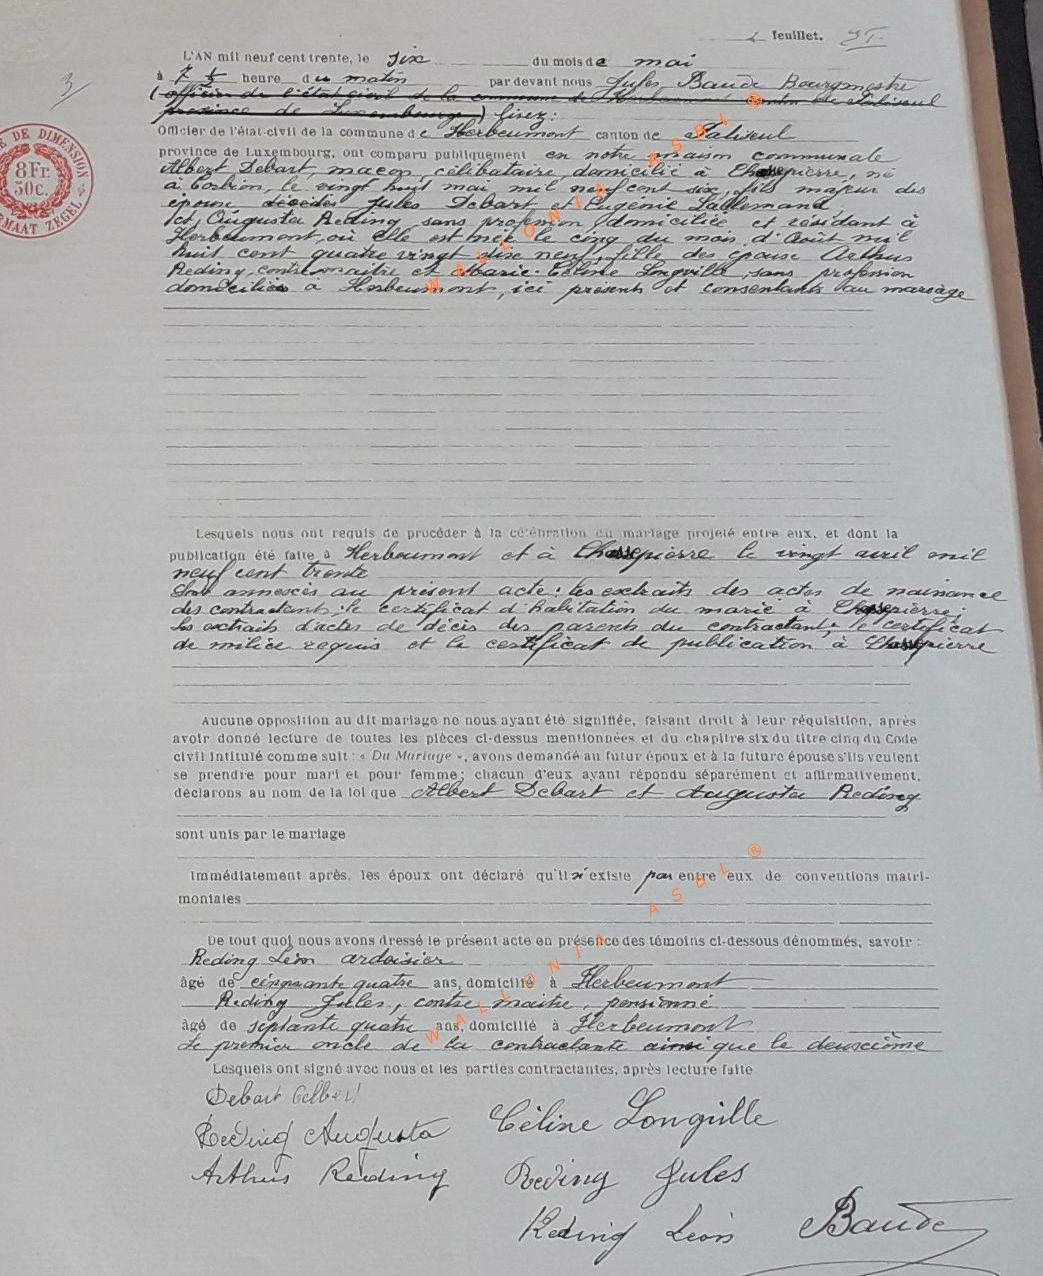 feuillet.
3
L'AN mil neuf cent trente, le six du mois de mai
à 7 ½ heure du matin par devant nous Jules Baude Bourgmestre
(officier de l'état civil de la commune de Herbeumont canton de Paliseul
province de Luxembourg) lisez:
Officier de l'état-civil de la commune de Herbeumont canton de Paliseul
province de Luxembourg, ont comparu publiquement en notre maison communale
Albert Debart, maçon, célibataire, domicilié à Chassepierre, né
à Corbion, le vingt huit mai mil neuf cent six, fils majeur des
époux décédés Jules Debart et Eugénie Lallemand
Et, Augusta Reding sans profession, domiciliée et résidant à
Herbeumont, où elle est née le cinq du mois d'Août mil
huit cent quatre vingt dixe neuf, fille des époux Arthus
Reding, contre maitre et Marie-Céline Longville, sans profession
domiciliés à Herbeumont, ici présents et consentants au mariage
Lesquels nous ont requis de procéder à la célébration du mariage projeté entre eux, et dont la
publication été faite à Herbeumont et à Chassepierre le vingt avril mil
neuf cent trente
Sont annexés au présent acte: les extraits des actes de naissance
des contractants; le certificat d'habitation du marié à Chassepierre;
les extraits d'actes de décès des parents du contractant; le certificat
de milice requis et le certificat de publication à Chassepierre
Aucune opposition au dit mariage ne nous ayant été signifiée, faisant droit à leur réquisition, après
avoir donné lecture de toutes les pièces ci-dessus mentionnées et du chapitre six du titre cinq du Code
civil intitulé comme suit: « Du Mariage », avons demandé au futur époux et à la future épouse s'ils veulent
se prendre pour mari et pour femme; chacun d'eux ayant répondu séparément et affirmativement.
déclarons au nom de la loi que Albert Debart et Augusta Reding
sont unis par le mariage
Immédiatement après, les époux ont déclaré qu'il n'existe pas entre eux de conventions matri-
moniales
De tout quoi nous avons dressé le présent acte en présence des témoins ci-dessous dénommés, savoir:
Reding Léon ardoisier
âgé de cinquante quatre ans, domicilié à Herbeumont
Reding Jules, contre maitre, pensionné
âgé de septante quatre ans, domicilié à Herbeumont
Le premier oncle de la contractante ainsi que le deuxième
Lesquels ont signé avec nous et les parties contractantes, après lecture faite
Debart Albert
Reding Augusta Céline Longville
Arthus Reding Reding Jules
Reding Léon Baude
DE DIMENSION
8Fr.
50c.
FORMAAT ZEGEL
WALLONIA ASBL ®
WALLONIA ASBL ®